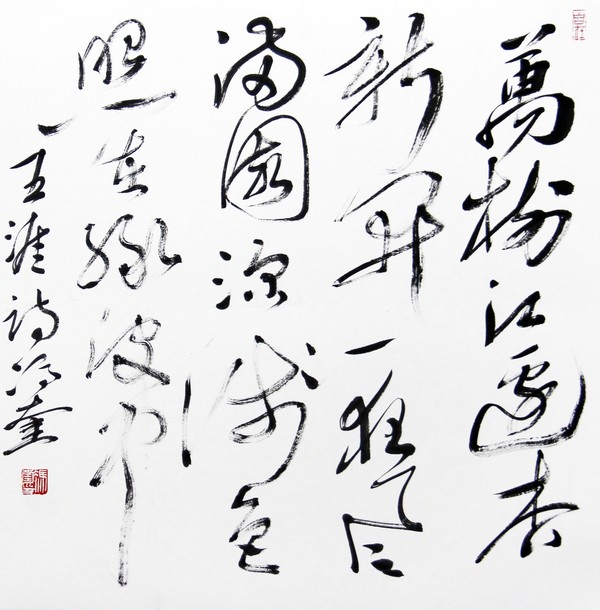 萬樹江邊杏
新開一夜風
滿園深淺色
照在綠波中
王涯詩馮奎